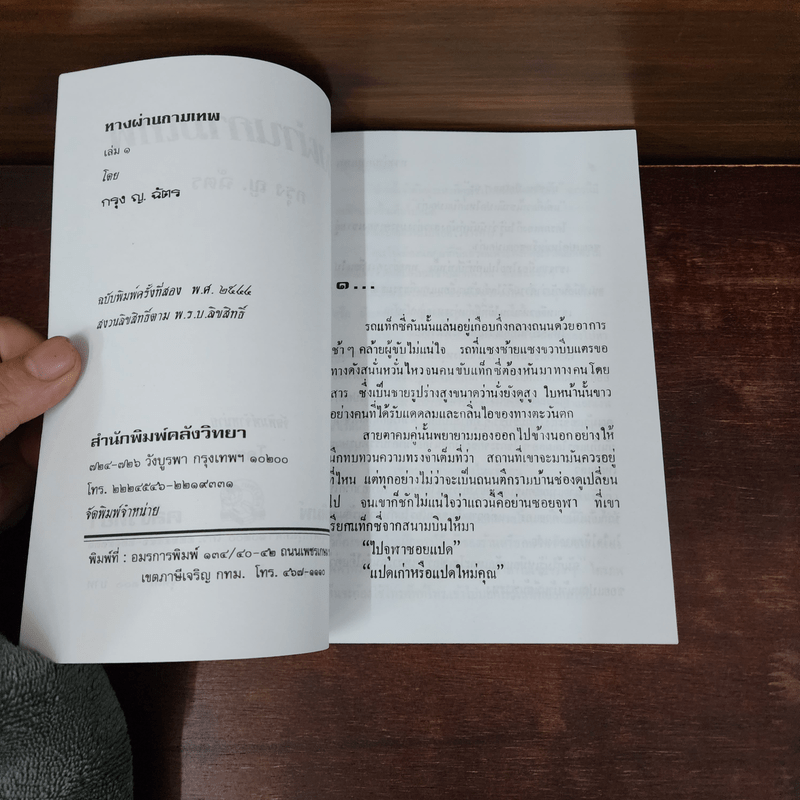 ทางผ่านกามเทพ
เล่ม ๑
โดย
กรุง ญ. ฉัตร
ฉบับพิมพ์ครั้งที่สอง พ.ศ. ๒๕๔๔
สงวนลิขสิทธิ์ตาม พ.ร.บ.ลิขสิทธิ์
สำนักพิมพ์คลังวิทยา
๗๒๔-๗๒๖ วังบูรพา กรุงเทพฯ ๑๐๒๐๐
โทร. ๒๒๒๔๕๔๖-๒๒๑๙๓๓๑
จัดพิมพ์จำหน่าย
พิมพ์ที่ : อมรการพิมพ์ ๑๓๔/๔๐-๔๒ ถนนเพชรเกษม
เขตภาษีเจริญ กทม. โทร. ๔๖๗-๑๑๑๐
๑...
รถแท็กซี่คันนั้นแล่นอยู่เกือบกึ่งกลางถนนด้วยอาการ
ช้าๆ คล้ายผู้ขับไม่แน่ใจ รถที่แซงซ้ายแซงขวาบีบแตรขอ
ทางดังสนั่นหวั่นไหวจนคนขับแท็กซี่ต้องหันมาทางคนโดย
สาร ซึ่งเป็นชายรูปร่างสูงขนาดว่านั่งยังดูสูง ใบหน้านั้นขาว
อย่างคนที่ได้รับแดดลมและกลิ่นไอของทางตะวันตก
สายตาคมคู่นั้นพยายามมองออกไปข้างนอกอย่างให้
นึกทบทวนความทรงจำเดิมที่ว่า สถานที่เขาจะมามันควรอยู่
ที่ไหน แต่ทุกอย่างไม่ว่าจะเป็นถนนตึกรามบ้านช่องดูเปลี่ยน
ไป จนเขาก็ชักไม่แน่ใจว่าแถวนี้คือย่านซอยจุฬา ที่เขา
เรียกแท็กซี่จากสนามบินให้มา
“ไปจุฬาซอยแปด”
“แปดเก่าหรือแปดใหม่คุณ”